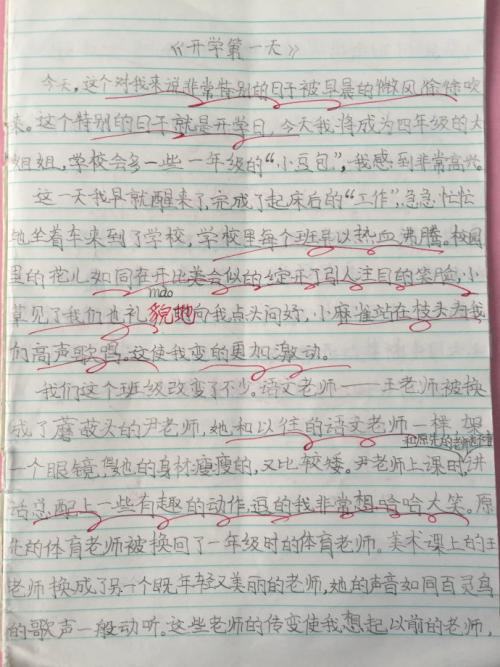 《开学第一天》
今天,这个对我来说非常特别的日子被早晨的微风徐徐吹
来。这个特别的日子就是开学日,今天我将成为四年级的大
姐姐,学校会多一些一年级的“小豆包”,我感到非常高兴。
这一天我早就醒来了,完成了起床后的“工作”,急急忙忙
地坐着车来到了学校,学校里每个班早以热血沸腾。校园
里的花儿如同在开比美会似的绽开了引人注目的笑脸,小
mào
草见了我们也礼貌地向我点头问好,小麻雀站在枝头为我
们高声歌唱。这使我变的更加激动。
我们这个班级改变了不少。语文老师——王老师被换
成了蘑菇头的尹老师,她和以往的语文老师一样架
一个眼镜,但她的身材瘦瘦的,又比较矮。尹老师上课时,讲
话总配上一些有趣的动作,逗的我非常想哈哈大笑。原
先的体育老师被换回了一年级时的体育老师。美术课上的王
老师换成了另一个既年轻又美丽的老师,她的声音如同百灵鸟
的歌声一般动听。这些老师的传变使我想起以前的老师,